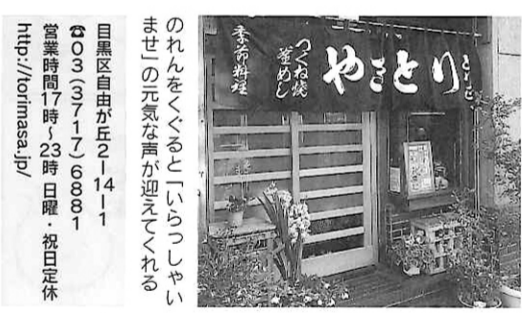 やきとり
とり正
つくね焼
釜めし
季節料理
のれんをくぐると「いらっしゃい
ませ」の元気な声が迎えてくれる
目黒区自由が丘2−14−1
☎03(3717)6881
営業時間17時〜23時 日曜・祝日定休
http://torimasa.jp/